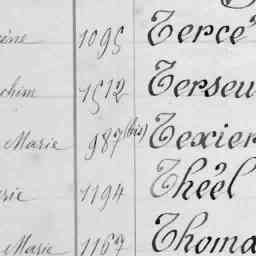 cène 1095 Tercé
chim 1512 Terseu
Marie 987 (bis) Texier
rie 1194 Théêl
Marie 1167 Thoma